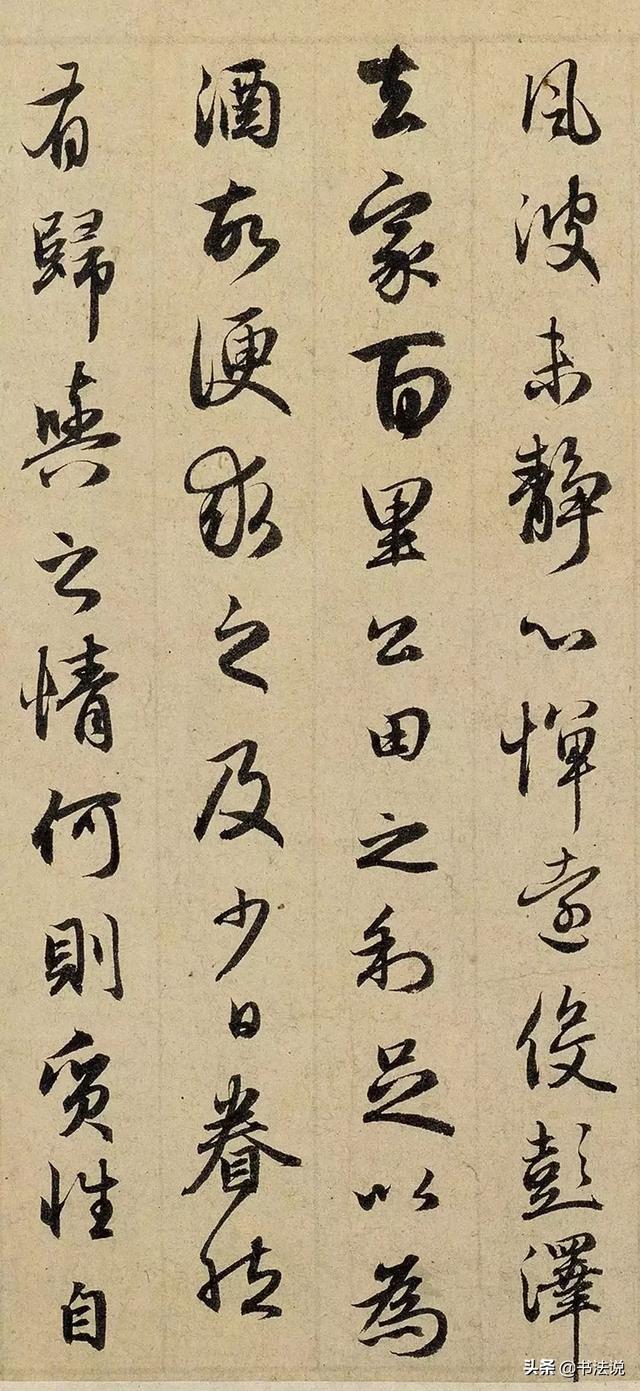 風波未靜心憚遠役彭澤
去家百里公田之利足以為
酒故便求之及少日眷然
有歸與之情何則質性自
头条 @书法说